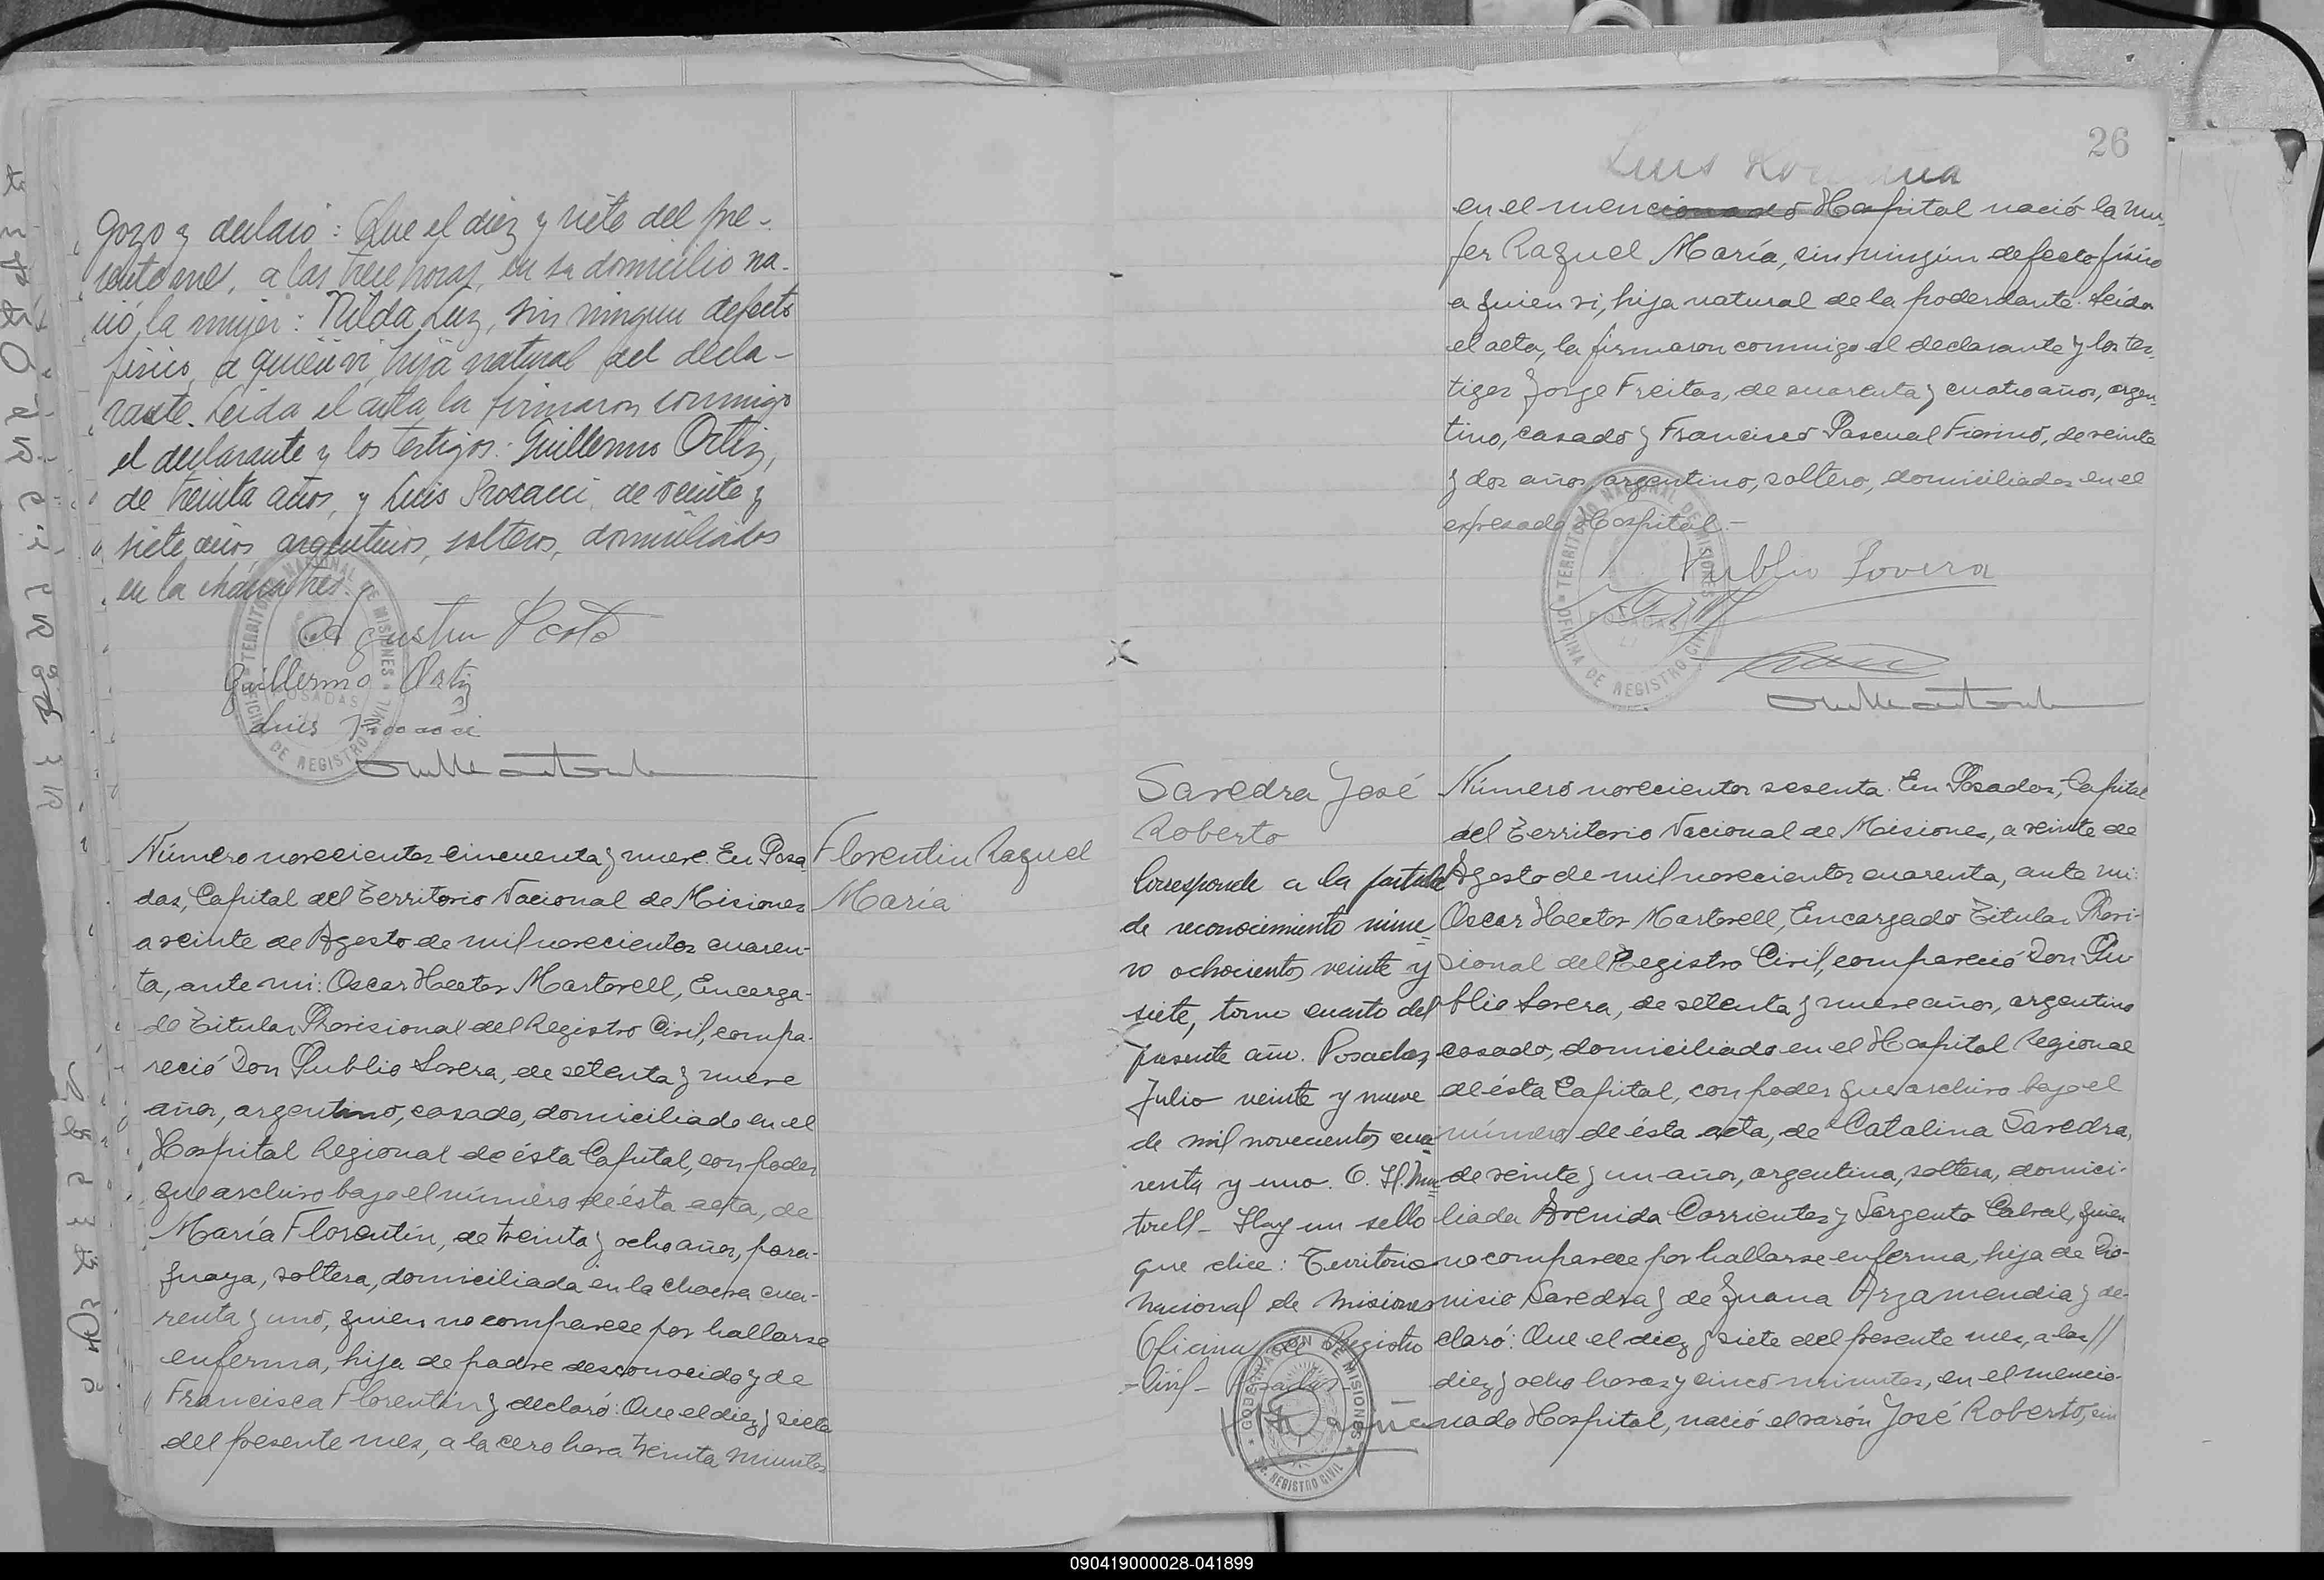 Gozo y declaró: Que el diez y siete del pre-
sente mes, a las trece horas, en su domicilio na-
ció, la mujer: Nilda Luz, sin ningun defecto
físico, a quien vi, hija natural del decla-
rante. Leida el acta la firmaron conmigo
el declarante y los testigos: Guillermo Ortiz,
de treinta años, y Luis Procacci, de veinte y
siete años, argentinos, solteros, domiciliados
en la chacra tres.
Agustin
Guillermo Ortiz
Luis
TERRITORIO NACIONAL DE MISIONES
OFICINA DE REGISTRO CIVIL
POSADAS
Número novecientos cincuenta y nueve. En Posa
das, Capital del Territorio Nacional de Misiones
a veinte de Agosto de mil novecientos cuaren-
ta, ante mi: Oscar Hector Martorell, Encarga-
do Titular Provisional del Registro Civil, compa-
reció Don Publio Lovera, de setenta y nueve
años, argentino, casado, domiciliado en el
Hospital Regional de ésta Capital, con poder
que archivo bajo el número de ésta acta, de
María Florentín, de treinta y ocho años, para-
guaya, soltera, domiciliada en la chacra cua-
renta y uno, quien no comparece por hallarse
enferma, hija de padre desconocido y de
Francisca Florentín y declaró: Que el diez y siete
del presente mes, a la cero hora treinta minutos
Florentin Raquel
María
26
Luis
en el mencionado Hospital nació la mu-
jer Raquel María, sin ningún defecto físico
a quien vi, hija natural de la poderdante. Leida
el acta, la firmaron conmigo el declarante y los tes-
tigos Jorge Freitas, de cuarenta y cuatro años, argen-
tino, casado y Francisco Pascual Fiorino, de veinte
y dos años, argentino, soltero, domiciliados en el
expresado Hospital.-
Publio Lovera
TERRITORIO NACIONAL DE MISIONES
OFICINA DE REGISTRO CIVIL
POSADAS
Savedra José
Roberto
Corresponde a la partida
de reconocimiento núme
ro ochocientos veinte y
siete, tomo cuarto del
presente año. Posadas,
Julio veinte y nueve
de mil novecientos cua
renta y uno. O. H. Mar
torell - Hay un sello
que dice: Territorio
Nacional de Misiones
Oficina de Registro
-Civil- Posadas
GOBERNACION DE MISIONES
REGISTRO CIVIL
Número novecientos sesenta. En Posadas, Capital
del Territorio Nacional de Misiones, a veinte de
Agosto de mil novecientos cuarenta, ante mi:
Oscar Hector Martorell, Encargado Titular Provi-
sional del Registro Civil, compareció Don Pu
blio Lovera, de setenta y nueve años, argentino
casado, domiciliado en el Hospital Regional
de ésta Capital, con poder que archivo bajo el
número de ésta acta, de Catalina Savedra,
de veinte y un años, argentina, soltera, domici-
liada Avenida Corrientes y Sargento Cabral, quien
no comparece por hallarse enferma, hija de Dio-
nisio Savedra y de Juana Argamendia y de-
claró: Que el diez y siete del presente mes, a las //
diez y ocho horas y cinco minutos, en el mencio-
nado Hospital, nació el varón José Roberto, sin
090419000028-041899